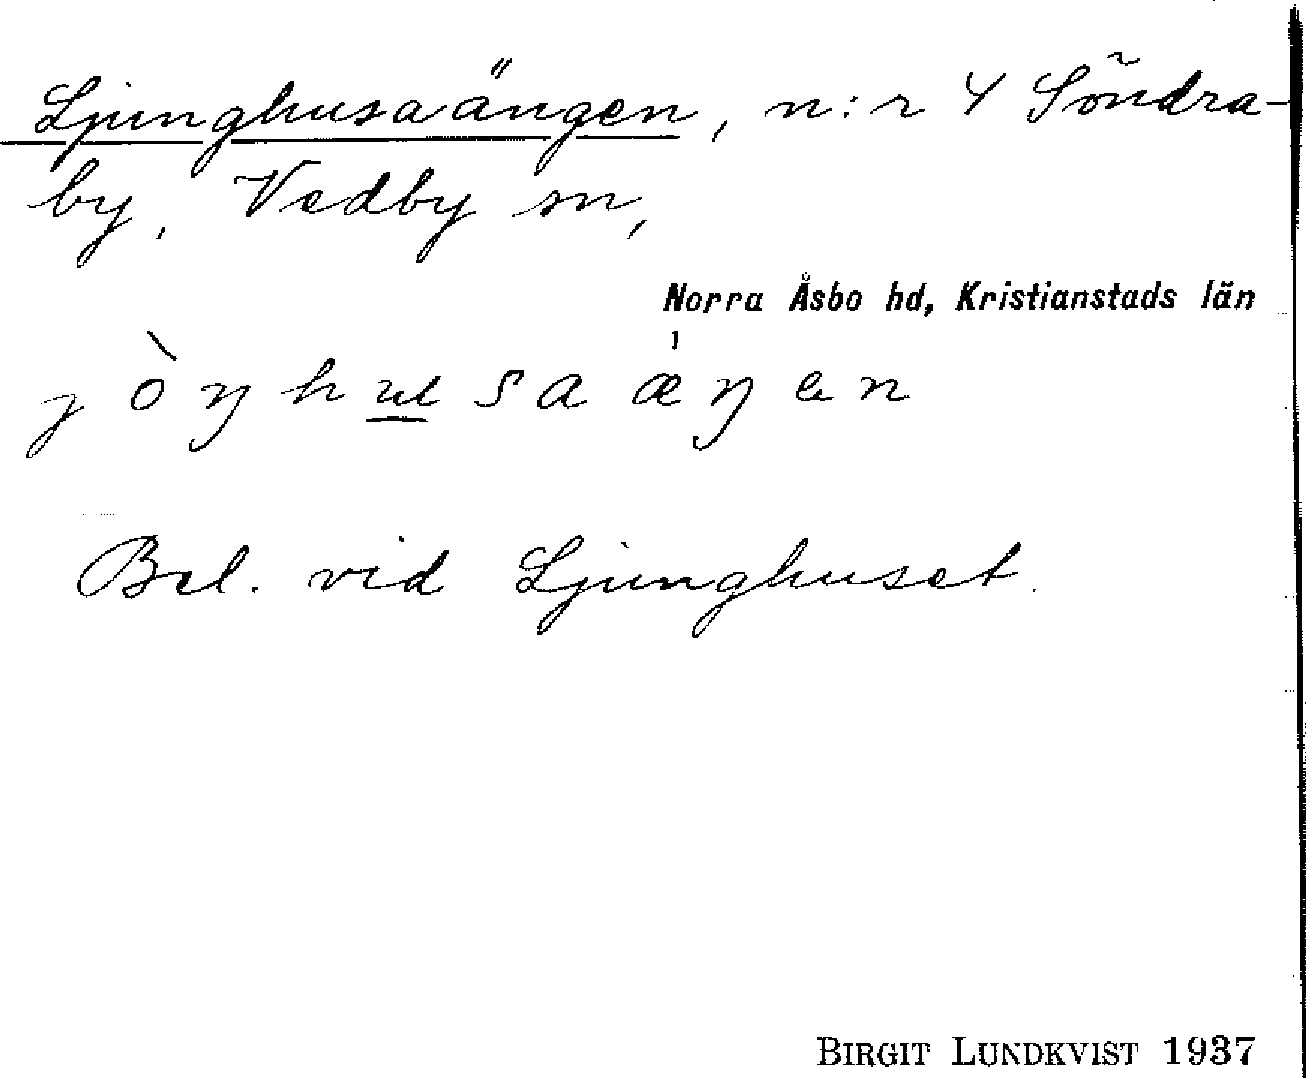 Ljunghusaängen, n:r 4 Söndra-
by, Vedby sn,
Norra Åsbo hd, Kristianstads län
jòŋhusaæ̍ŋen
Bel. vid Ljunghuset.
BIRGIT LUNDKVIST 1937